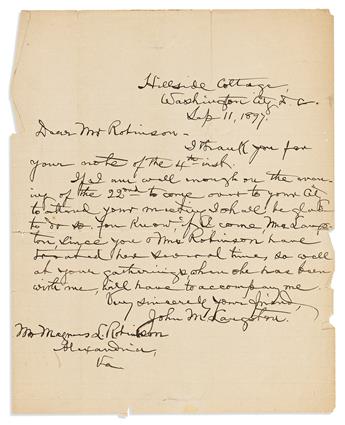 Hillside Cottage,
Washington City D. C.
Sep 11, 1897.
Dear Mr Robinson -
I thank you for
your note of the 4th inst.
If I am well enough on the even-
ing of the 22nd to come over to your City
to attend your meeting I shall be glad
to do so. You know, if I come, Mrs. Langs-
ton since you & Mrs Robinson have
treated her several times, so well
at your gatherings, when she has been
with me, will have to accompany me.
Very sincerely your friend,
John M. Langston.
Mr Magnus L. Robinson
Alexandria,
Va